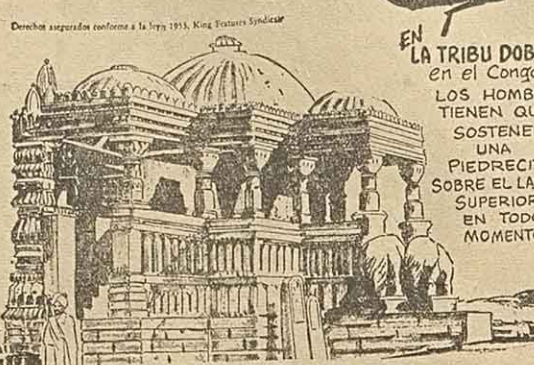 Derechos asegurados conforme a la ley, 1953, King Features Syndicate
EN
LA TRIBU DOB
en el Congo
LOS HOMB
TIENEN QU
SOSTENE
UNA
PIEDRECIT
SOBRE EL LA
SUPERIOR
EN TODO
MOMENTO